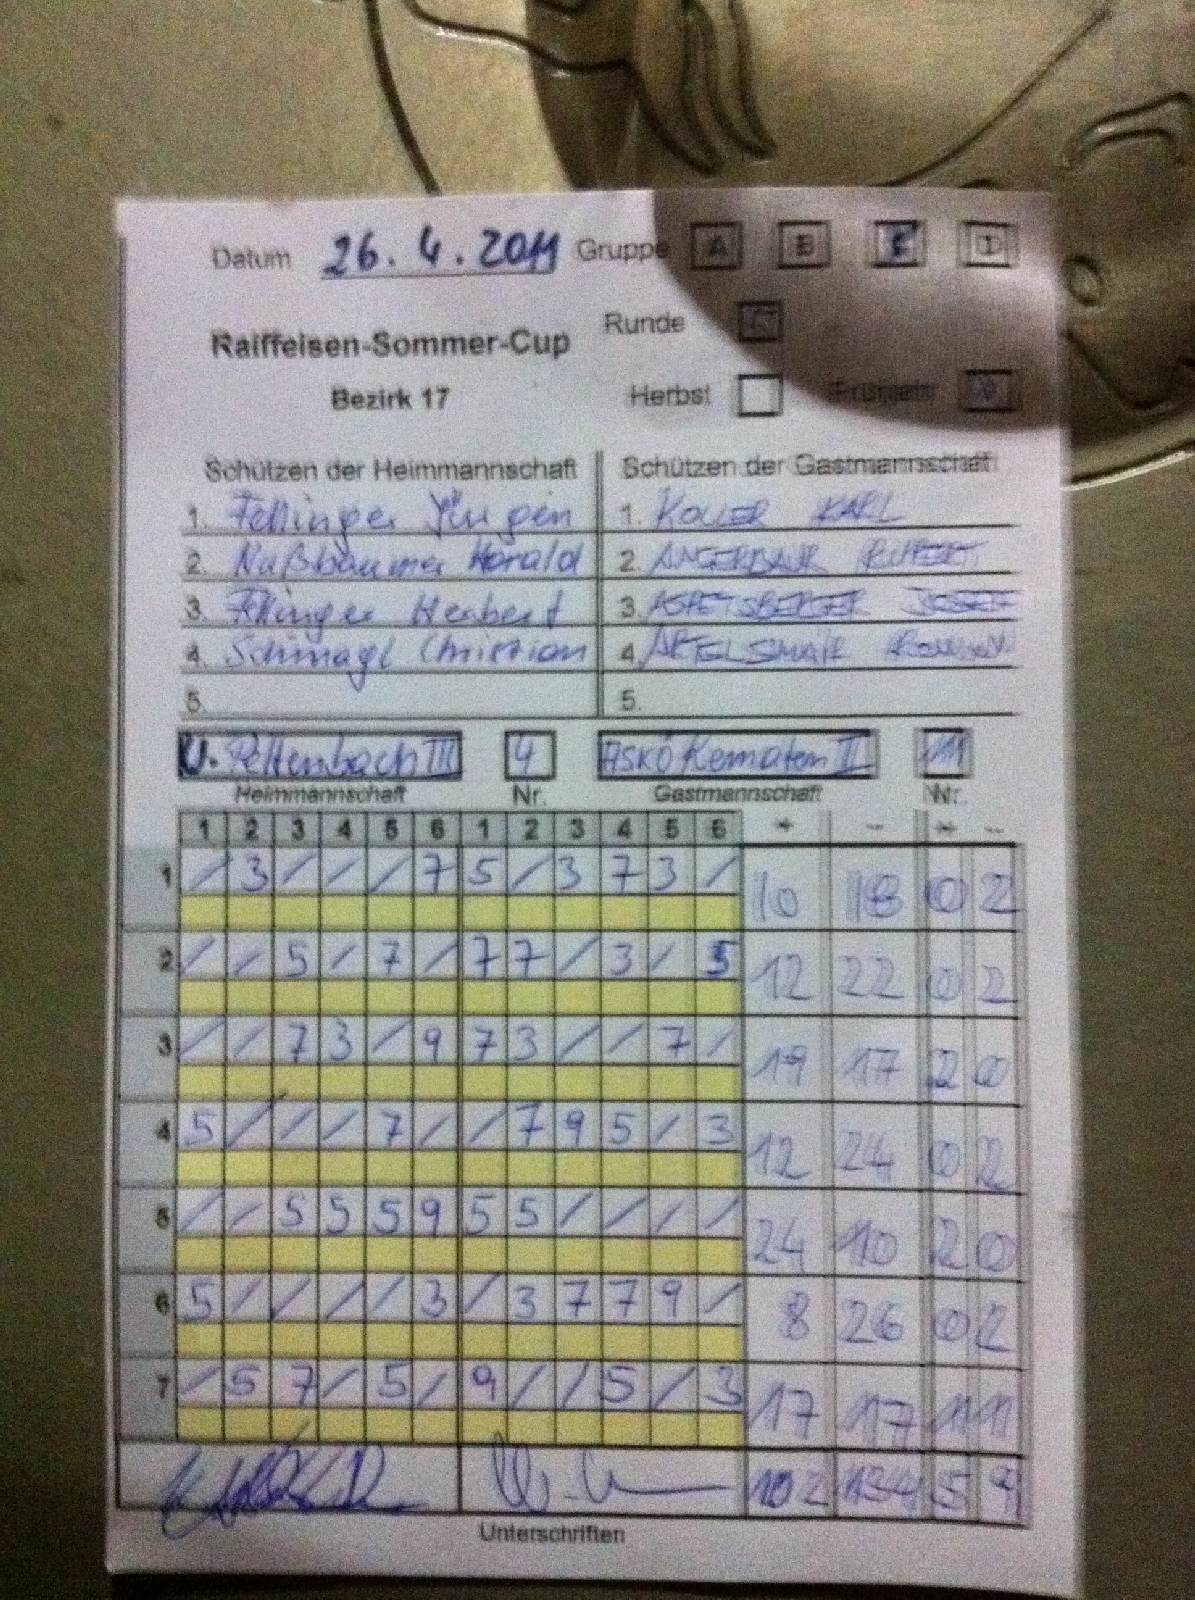 Datum 26.4.2011 Gruppe A B C D
Raiffeisen-Sommer-Cup Runde 5
Bezirk 17 Herbst Frühjahr
Schützen der Heimmannschaft Schützen der Gastmannschaft
1. Fellinger Jürgen 1. KOLLER KARL
2. Nußbaumer Harald 2. ANGERBAUR RUPERT
3. Fellinger Herbert 3. ASPETSBERGER JOSEF
4. Schmagl Christian 4. ARTELSMAIR ROMAN
5. 5.
U. Pettenbach III 4 ASKÖ Kematen II 11
Heimmannschaft Nr. Gastmannschaft Nr.
1 2 3 4 5 6 1 2 3 4 5 6 + - + -
1 / 3 / / / 7 5 / 3 7 3 / 10 18 0 2
2 / / 5 / 7 / 7 7 / 3 / 5 12 22 0 2
3 / / 7 3 / 9 7 3 / / 7 / 19 17 2 0
4 5 / / / 7 / / 7 9 5 / 3 12 24 0 2
5 / / 5 5 5 9 5 5 / / / / 24 10 2 0
6 5 / / / / 3 / 3 7 7 9 / 8 26 0 2
7 / 5 7 / 5 / 9 / / 5 / 3 17 17 1 1
102 134 5 9
Unterschriften